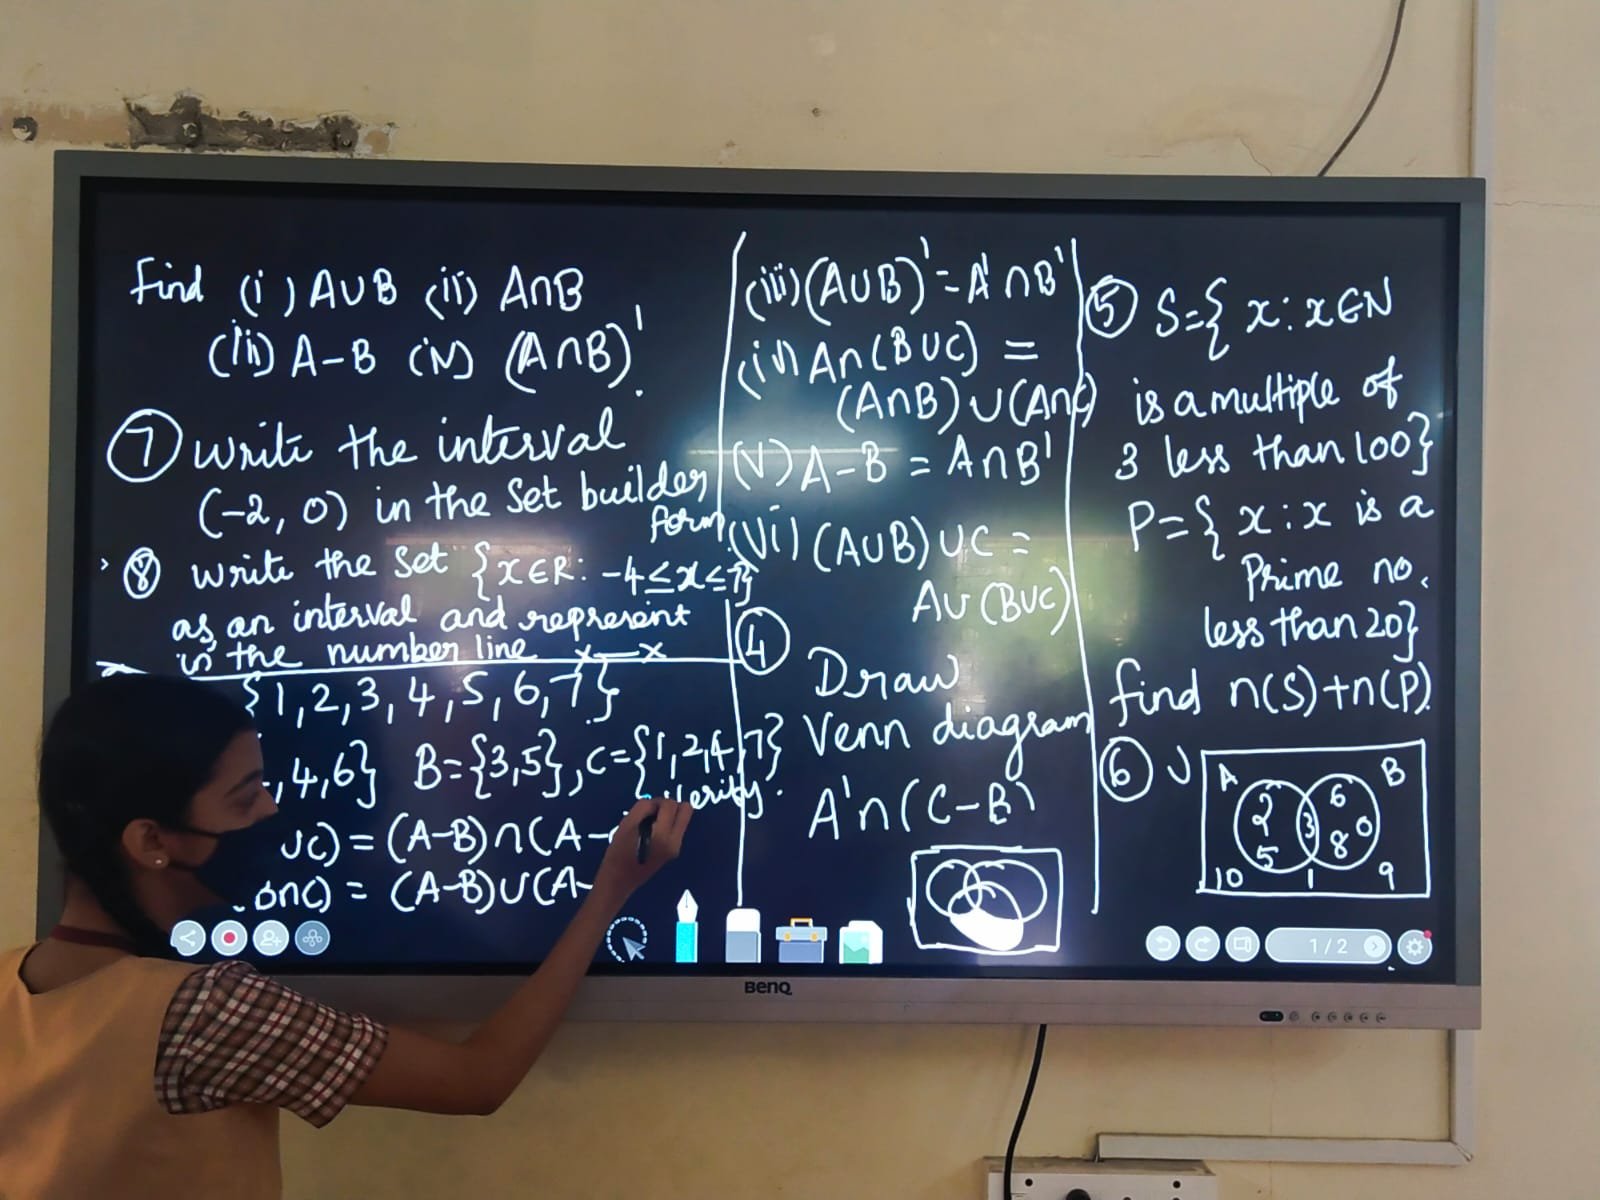 Find (i) A∪B (ii) A∩B
(iii) A-B (iv) (A∩B)'.
⑦ Write the interval
(-2, 0) in the set builder
form.
⑧ Write the set {x∈R: -4≤x≤7}
as an interval and represent
in the number line x—x
{1,2,3,4,5,6,7}
,4,6} B={3,5}, C={1,2,4,7}
verify.
∪C) = (A-B)∩(A-
∩C) = (A-B)∪(A-
(iii) (A∪B)' = A'∩B'
(iv) A∩(B∪C) =
(A∩B)∪(A∩C)
(V) A-B = A∩B'
(Vi) (A∪B)∪C =
A∪(B∪C)
④ Draw
Venn diagram
A'∩(C-B)
⑤ S={ x: x∈N
is a multiple of
3 less than 100}
P={ x: x is a
Prime no.
less than 20}
find n(S)+n(P).
⑥ U
A B
2 6
3 0
5 8
10 1 9
1/2
BenQ